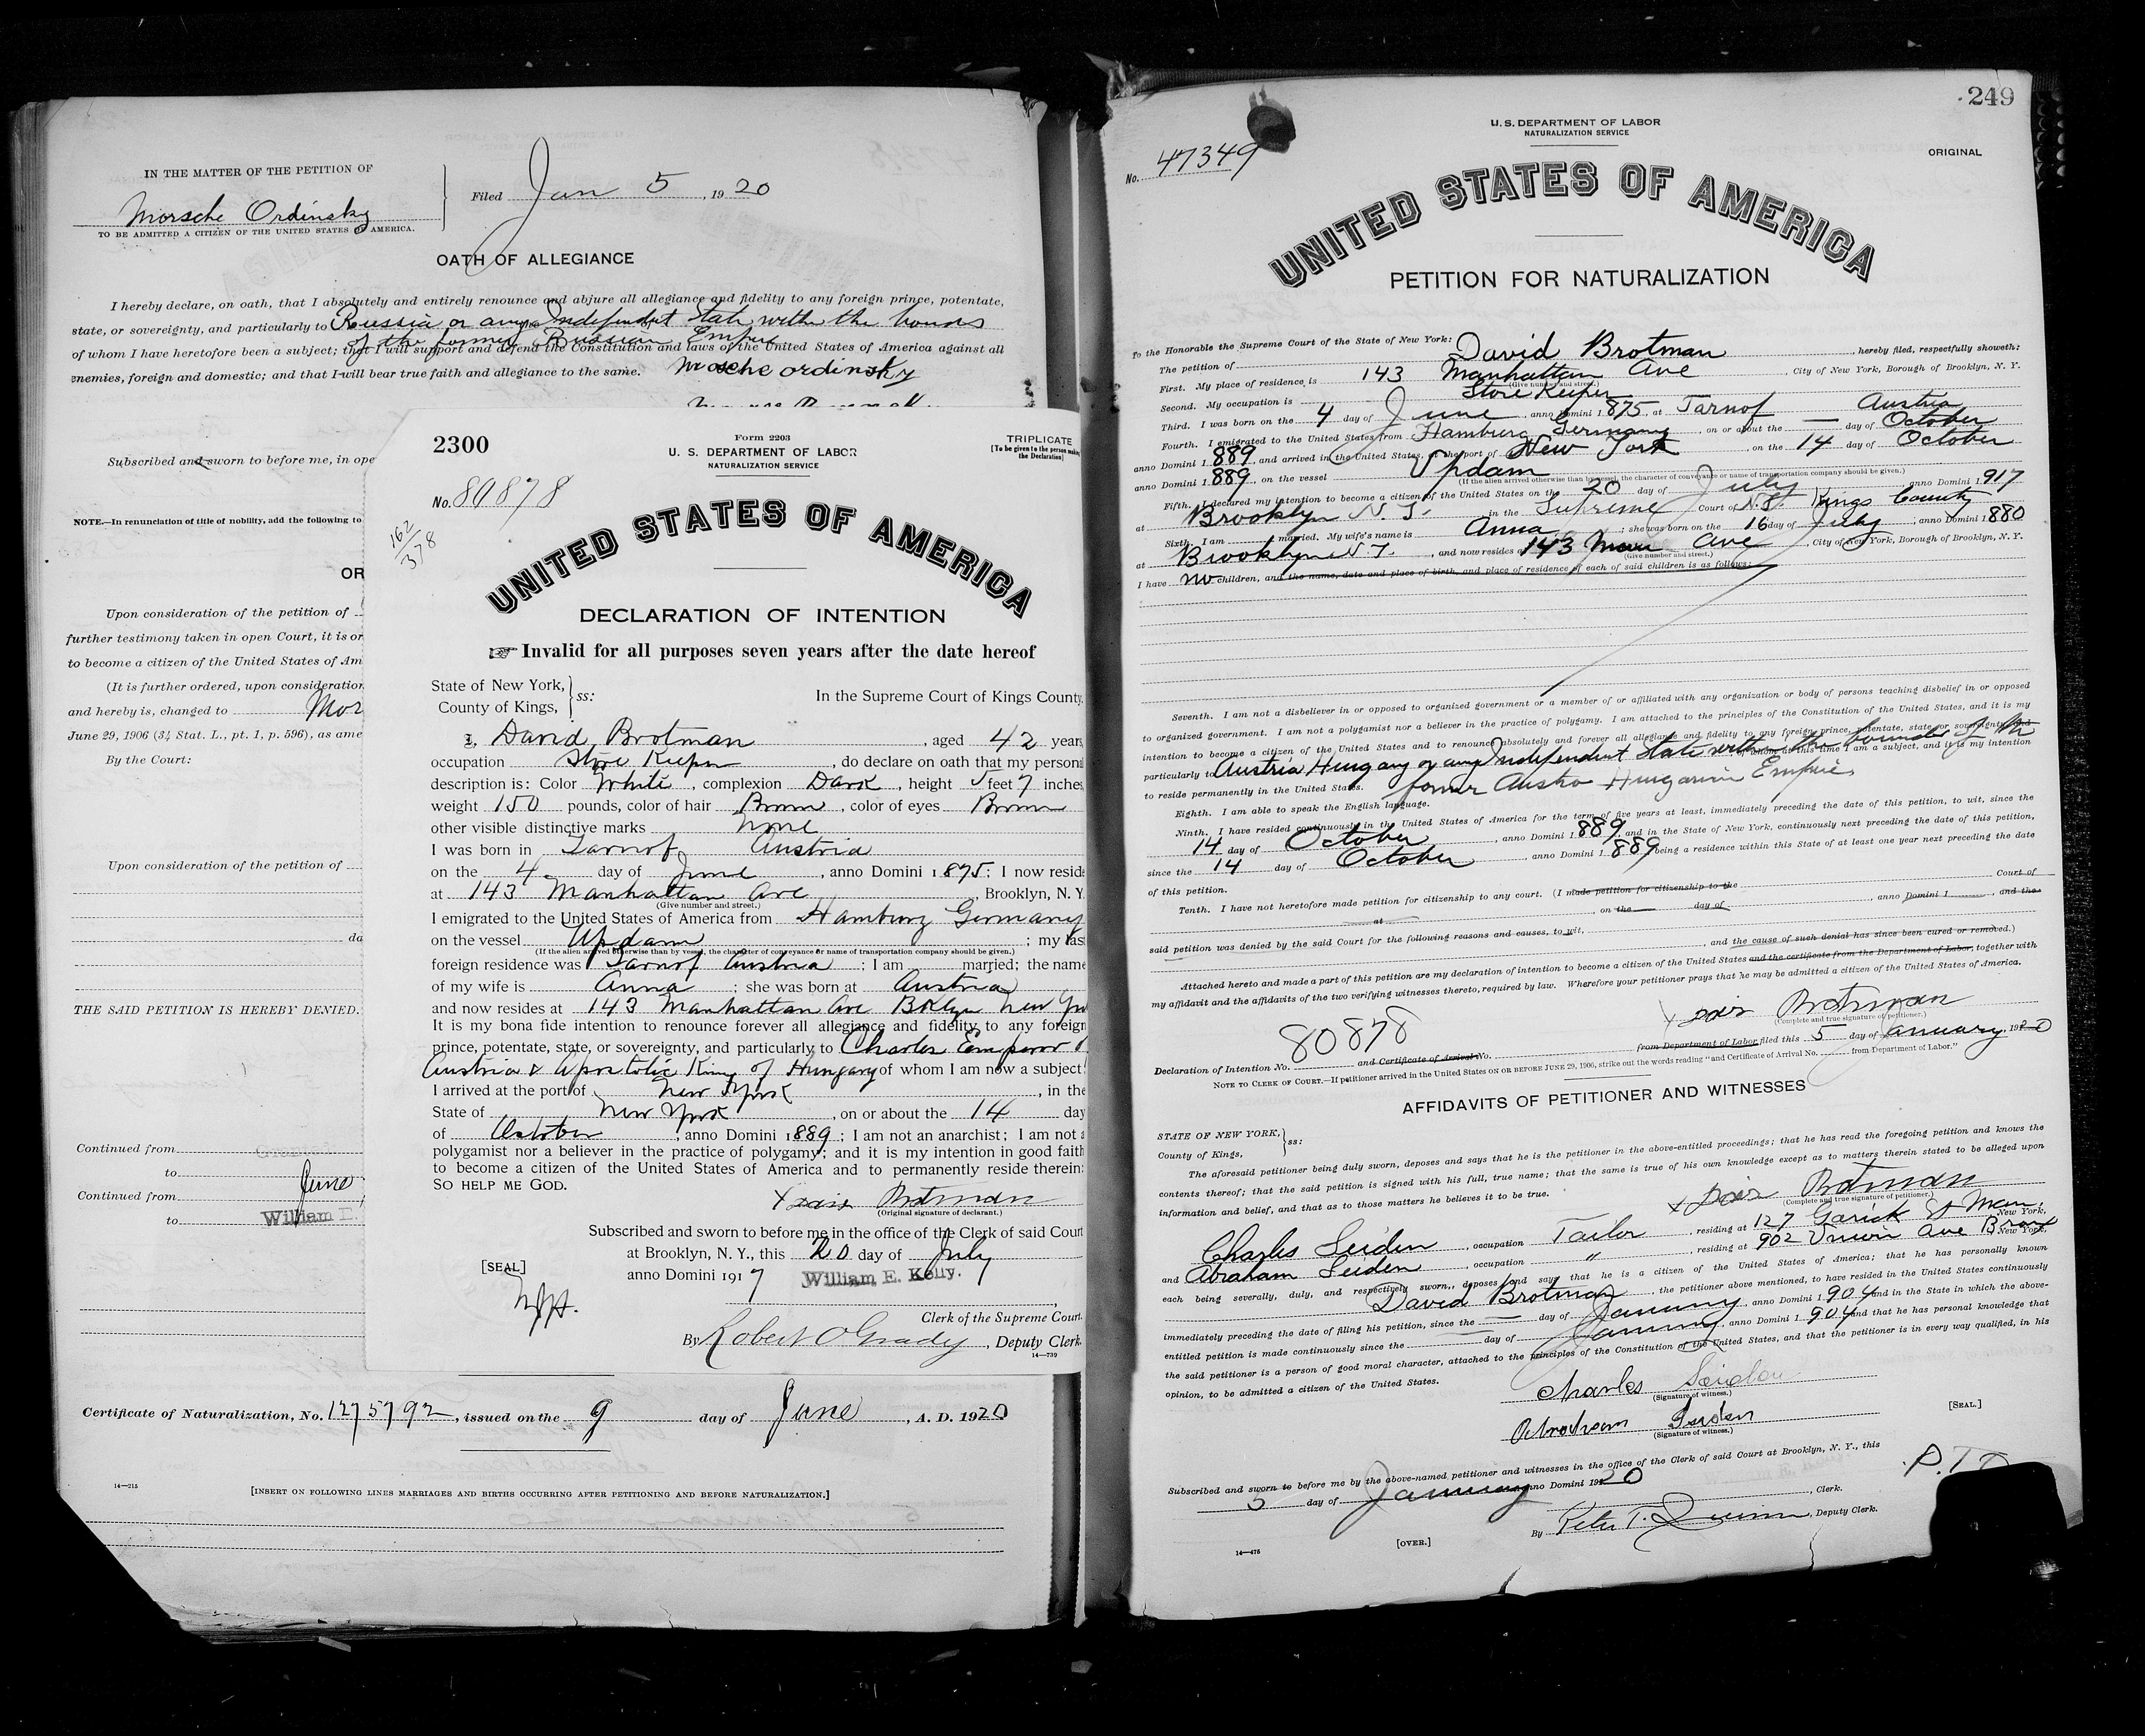 IN THE MATTER OF THE PETITION OF
Morsche Ordinsky
TO BE ADMITTED A CITIZEN OF THE UNITED STATES OF AMERICA.
Filed Jan 5, 1920
OATH OF ALLEGIANCE
I hereby declare, on oath, that I absolutely and entirely renounce and abjure all allegiance and fidelity to any foreign prince, potentate,
state, or sovereignty, and particularly to Russia or any Independent State within the bounds
of the former Russian Empire
of whom I have heretofore been a subject; that I will support and defend the Constitution and laws of the United States of America against all
enemies, foreign and domestic; and that I will bear true faith and allegiance to the same. Mosche ordinsky
Subscribed and sworn to before me, in ope
NOTE.—In renunciation of title of nobility, add the following to
OR
Upon consideration of the petition of
further testimony taken in open Court, it is or
to become a citizen of the United States of Am
(It is further ordered, upon consideration
and hereby is, changed to Mor
June 29, 1906 (34 Stat. L., pt. 1, p. 596), as ame
By the Court:
Upon consideration of the petition of
da
THE SAID PETITION IS HEREBY DENIED.
Continued from
to June
Continued from
to William E.
Certificate of Naturalization, No. 1275792, issued on the 9 day of June, A. D. 1920
14—215
[INSERT ON FOLLOWING LINES MARRIAGES AND BIRTHS OCCURRING AFTER PETITIONING AND BEFORE NATURALIZATION.]
2300
Form 2203
U. S. DEPARTMENT OF LABOR
NATURALIZATION SERVICE
TRIPLICATE
[To be given to the person making
the Declaration]
No. 80878
162/378
UNITED STATES OF AMERICA
DECLARATION OF INTENTION
☞ Invalid for all purposes seven years after the date hereof
State of New York,
County of Kings, ss:
In the Supreme Court of Kings County.
I, David Brotman, aged 42 years
occupation Store Keeper, do declare on oath that my personal
description is: Color White, complexion Dark, height 5 feet 7 inches
weight 150 pounds, color of hair Brown, color of eyes Brown
other visible distinctive marks None
I was born in Tarnof Austria
on the 4 day of June, anno Domini 1875; I now reside
at 143 Manhattan Ave, Brooklyn, N. Y.
(Give number and street.)
I emigrated to the United States of America from Hamburg Germany
on the vessel Updam; my last
(If the alien arrived otherwise than by vessel, the character of conveyance or name of transportation company should be given.)
foreign residence was Tarnof Austria; I am married; the name
of my wife is Anna; she was born at Austria
and now resides at 143 Manhattan Ave Bklyn New Yor
It is my bona fide intention to renounce forever all allegiance and fidelity to any foreign
prince, potentate, state, or sovereignty, and particularly to Charles Emperor o
Austria & Apostolic King of Hungary of whom I am now a subject
I arrived at the port of New York, in the
State of New York, on or about the 14 day
of October, anno Domini 1889; I am not an anarchist; I am not a
polygamist nor a believer in the practice of polygamy; and it is my intention in good faith
to become a citizen of the United States of America and to permanently reside therein:
SO HELP ME GOD.
X Brotman
(Original signature of declarant.)
Subscribed and sworn to before me in the office of the Clerk of said Court
at Brooklyn, N. Y., this 20 day of July
[SEAL]
anno Domini 1917 William E. Kelly.
Clerk of the Supreme Court.
By Robert O'Grady, Deputy Clerk.
14—739
249
U. S. DEPARTMENT OF LABOR
NATURALIZATION SERVICE
No. 47349
ORIGINAL
UNITED STATES OF AMERICA
PETITION FOR NATURALIZATION
To the Honorable the Supreme Court of the State of New York:
The petition of David Brotman, hereby filed, respectfully showeth:
First. My place of residence is 143 Manhattan Ave, City of New York, Borough of Brooklyn, N. Y.
(Give number and street.)
Second. My occupation is Store Keeper
Third. I was born on the 4 day of June, anno Domini 1875, at Tarnof Austria
Fourth. I emigrated to the United States from Hamburg Germany, on or about the — day of October
anno Domini 1889, and arrived in the United States, at the port of New York, on the 14 day of October
anno Domini 1889, on the vessel Updam
(If the alien arrived otherwise than by vessel, the character of conveyance or name of transportation company should be given.)
Fifth. I declared my intention to become a citizen of the United States on the 20 day of July, anno Domini 1917
at Brooklyn N. Y. in the Supreme Court of N.Y. Kings County
Sixth. I am married. My wife's name is Anna; she was born on the 16 day of July, anno Domini 1880
at Brooklyn N.Y., and now resides 143 Man Ave, City of New York, Borough of Brooklyn, N. Y.
(Give number and street.)
I have no children, and the name, date and place of birth, and place of residence of each of said children is as follows:
Seventh. I am not a disbeliever in or opposed to organized government or a member of or affiliated with any organization or body of persons teaching disbelief in or opposed
to organized government. I am not a polygamist nor a believer in the practice of polygamy. I am attached to the principles of the Constitution of the United States, and it is my
intention to become a citizen of the United States and to renounce absolutely and forever all allegiance and fidelity to any foreign prince, potentate, state, or sovereignty, and
particularly to Austria Hungary or any Independent State within the bounds of the
of whom at this time I am a subject, and it is my intention
to reside permanently in the United States. former Austro Hungarian Empire
Eighth. I am able to speak the English language.
Ninth. I have resided continuously in the United States of America for the term of five years at least, immediately preceding the date of this petition, to wit, since the
14 day of October, anno Domini 1889, and in the State of New York, continuously next preceding the date of this petition,
since the 14 day of October, anno Domini 1889, being a residence within this State of at least one year next preceding the date
of this petition.
Tenth. I have not heretofore made petition for citizenship to any court. (I made petition for citizenship to the Court of
at, on the day of, anno Domini 1, and the
said petition was denied by the said Court for the following reasons and causes, to wit,
, and the cause of such denial has since been cured or removed.)
Attached hereto and made a part of this petition are my declaration of intention to become a citizen of the United States and the certificate from the Department of Labor, together with
my affidavit and the affidavits of the two verifying witnesses thereto, required by law. Wherefore your petitioner prays that he may be admitted a citizen of the United States of America.
X Brotman
(Complete and true signature of petitioner.)
Declaration of Intention No. 80878 and Certificate of Arrival No. from Department of Labor filed this 5 day of January, 1920
NOTE TO CLERK OF COURT.—If petitioner arrived in the United States ON OR BEFORE JUNE 29, 1906, strike out the words reading "and Certificate of Arrival No. from Department of Labor."
AFFIDAVITS OF PETITIONER AND WITNESSES
STATE OF NEW YORK,
County of Kings, ss:
The aforesaid petitioner being duly sworn, deposes and says that he is the petitioner in the above-entitled proceedings; that he has read the foregoing petition and knows the
contents thereof; that the said petition is signed with his full, true name; that the same is true of his own knowledge except as to matters therein stated to be alleged upon
information and belief, and that as to those matters he believes it to be true.
X Brotman
(Complete and true signature of petitioner.)
Charles Seiden, occupation Tailor, residing at 127 Garick St Man, New York,
and Abraham Seiden, occupation ", residing at 902 Union Ave Bronx New York,
each being severally, duly, and respectively sworn, deposes and says that he is a citizen of the United States of America; that he has personally known
David Brotman, the petitioner above mentioned, to have resided in the United States continuously
immediately preceding the date of filing his petition, since the — day of January, anno Domini 1904 and in the State in which the above-
entitled petition is made continuously since the — day of January, anno Domini 1904 and that he has personal knowledge that
the said petitioner is a person of good moral character, attached to the principles of the Constitution of the United States, and that the petitioner is in every way qualified, in his
opinion, to be admitted a citizen of the United States.
Charles Seiden
(Signature of witness.)
Abraham Seiden
(Signature of witness.)
[SEAL.]
Subscribed and sworn to before me by the above-named petitioner and witnesses in the office of the Clerk of said Court at Brooklyn, N. Y., this
5 day of January anno Domini 1920
, Clerk.
By Peter T. Quinn, Deputy Clerk.
14—475
[OVER.]